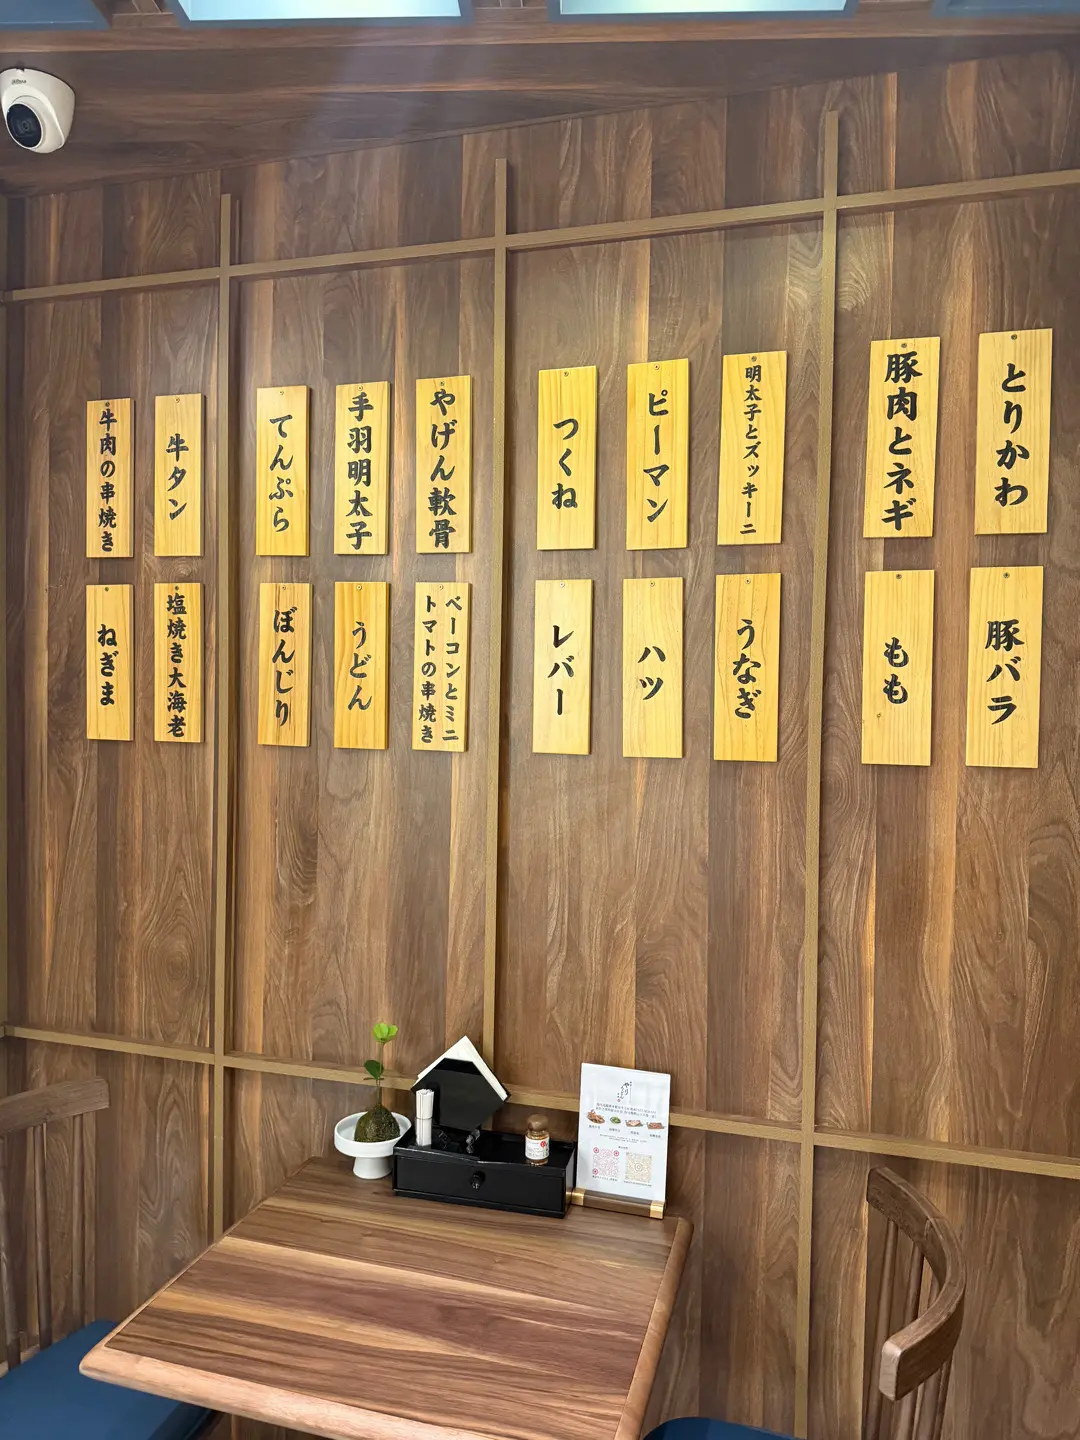 とりかわ
豚肉とネギ
明太子とズッキーニ
ピーマン
つくね
やげん軟骨
手羽明太子
てんぷら
牛タン
牛肉の串焼き
豚バラ
もも
うなぎ
ハツ
レバー
ベーコンとミニ
トマトの串焼き
うどん
ぼんじり
塩焼き大海老
ねぎま